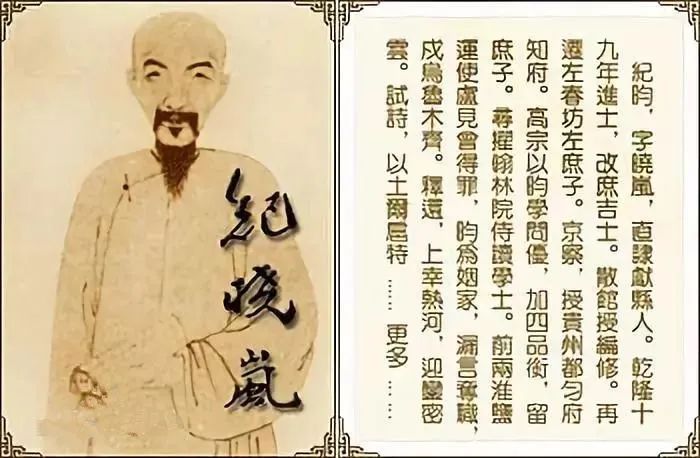 紀曉嵐
紀昀，字曉嵐，直隸獻縣人。乾隆十
九年進士，改庶吉士。散館授編修。再
遷左春坊左庶子。京察，授貴州都勻府
知府。高宗以昀學問優，加四品銜，留
庶子。尋擢翰林院侍讀學士。前兩淮鹽
運使盧見曾得罪，昀為姻家，漏言奪職，
戍烏魯木齊。釋還，上幸熱河，迎鑾密
雲。試詩，以土爾扈特 …… 更多 ……